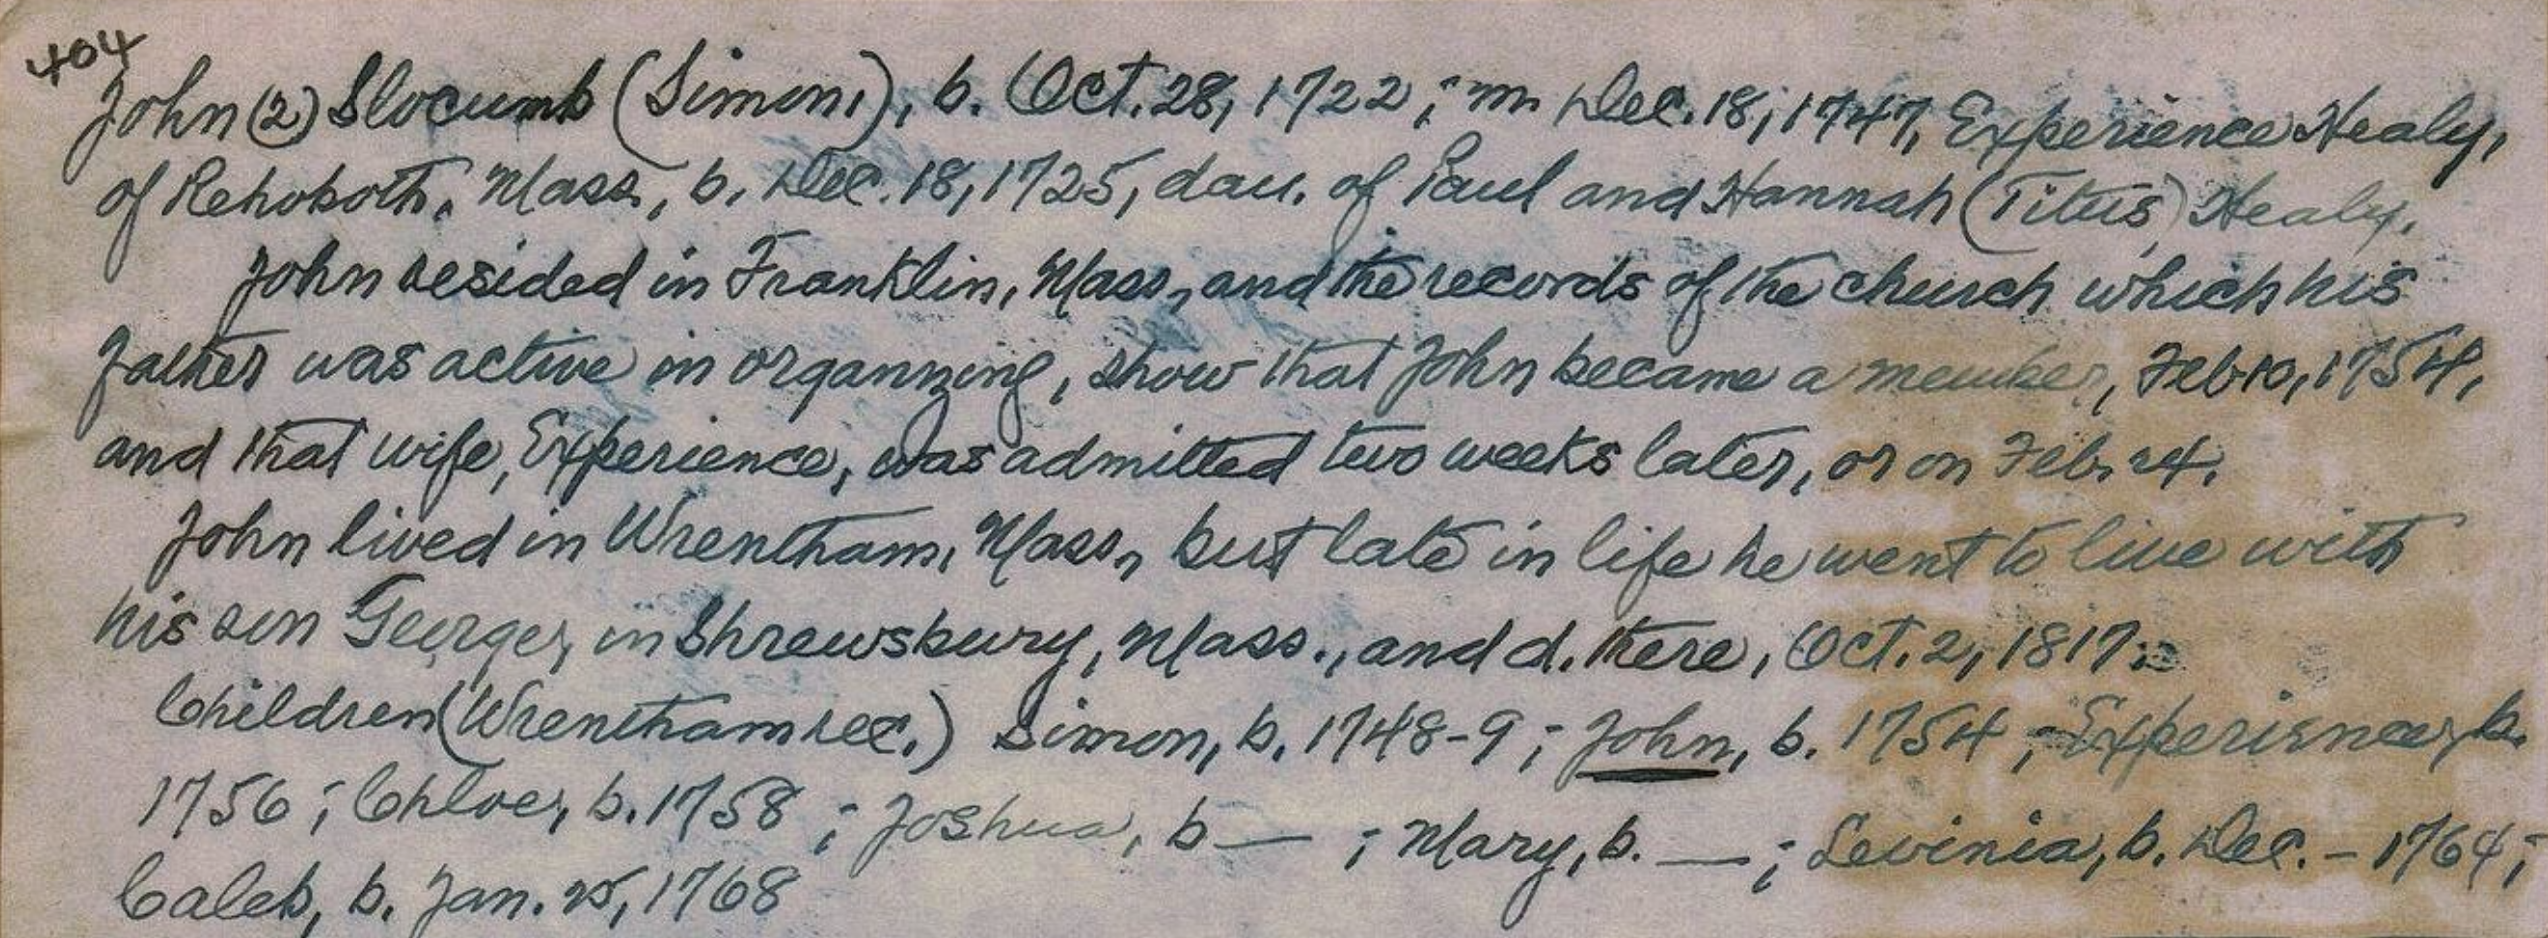 404
John (2) Slocumb (Simon1), b. Oct. 28, 1722; m. Dec. 18, 1747, Experience Healy,
of Rehoboth, Mass., b. Dec. 18, 1725, dau. of Paul and Hannah (Titus) Healy.
John resided in Franklin, Mass., and the records of the church which his
father was active in organizing, show that John became a member, Feb 10, 1754,
and that wife, Experience, was admitted two weeks later, or on Feb. 24.
John lived in Wrentham, Mass., but late in life he went to live with
his son George, in Shrewsbury, Mass., and d. there, Oct. 2, 1817.
Children (Wrentham rec.) Simon, b. 1748-9; John, b. 1754; Experience, b.
1756; Chloe, b. 1758; Joshua, b — ; Mary, b. — ; Levinia, b. Dec. - 1764;
Caleb, b. Jan. 25, 1768